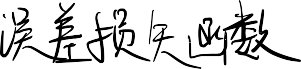 误差损失函数